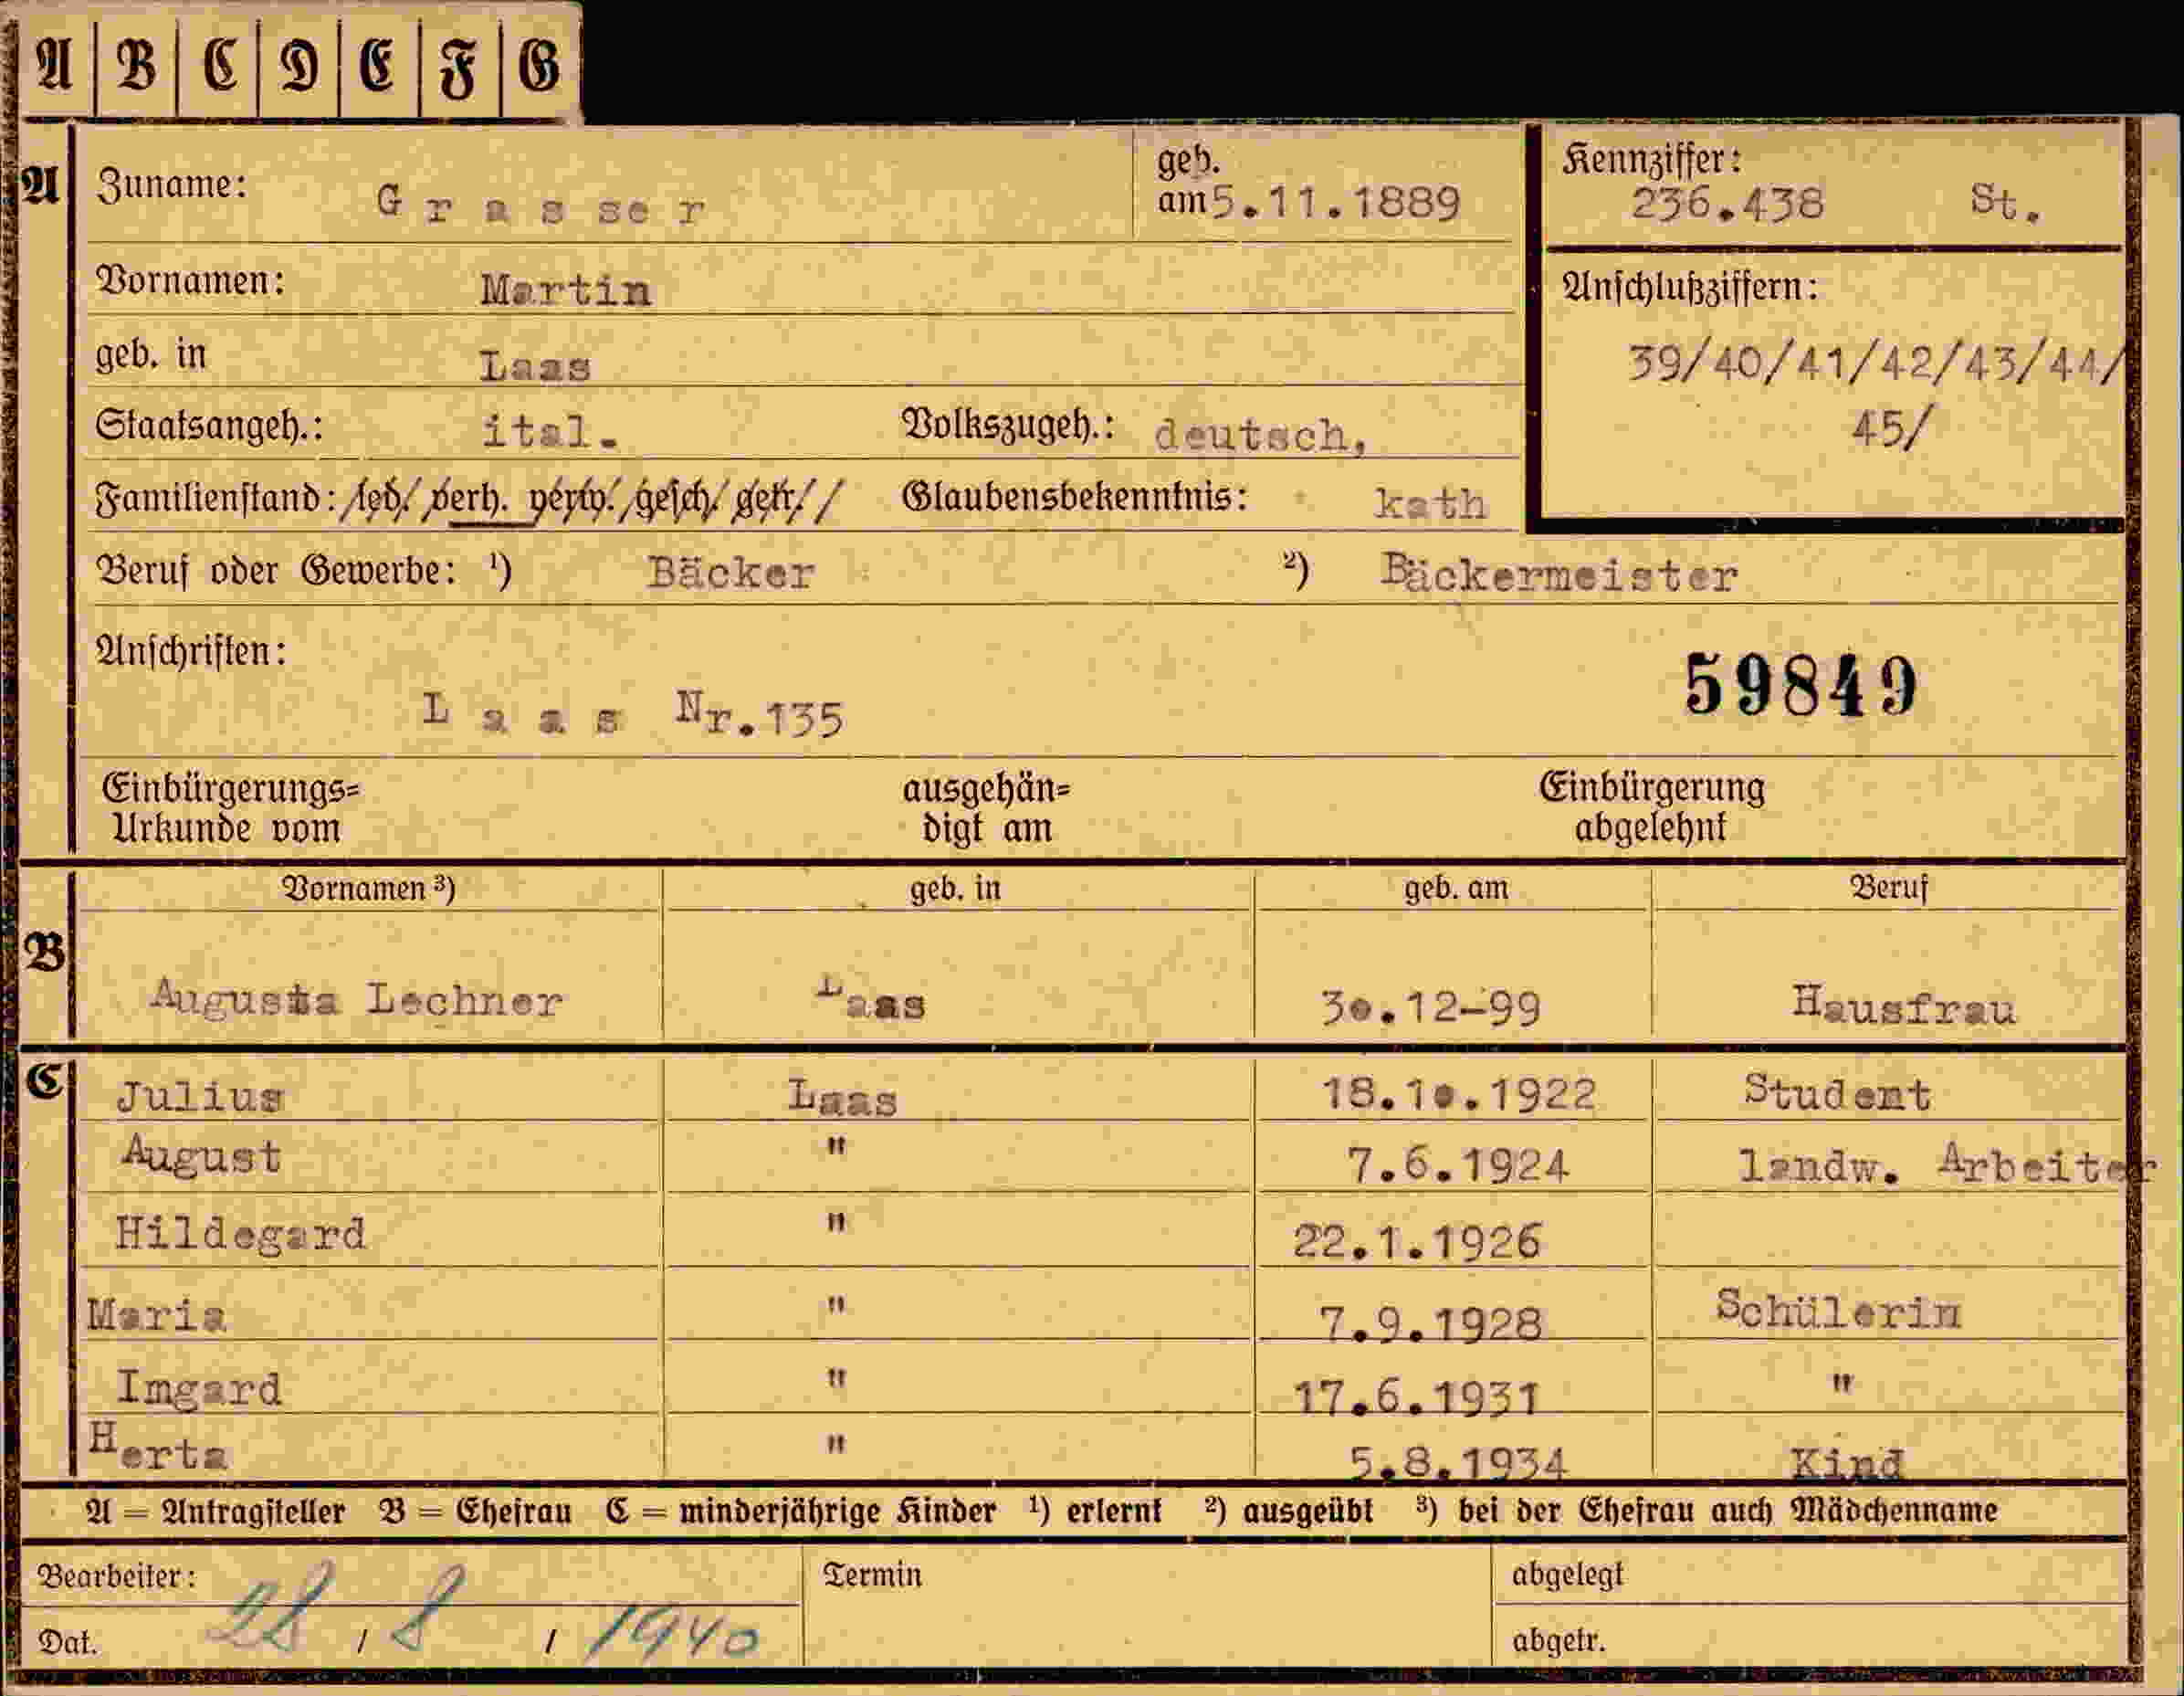 A B C D E F G
A Zuname: Grasser geb. am 5.11.1889 Kennziffer: 236.438 St.
Vornamen: Martin Anschlußziffern:
geb. in Laas 39/40/41/42/43/44/
Staatsangeh.: ital. Volkszugeh.: deutsch, 45/
Familienstand: led. verh. verw. gesch. getr. Glaubensbekenntnis: kath
Beruf oder Gewerbe: ¹) Bäcker ²) Bäckermeister
Anschriften:
59849
Laas Nr.135
Einbürgerungs= ausgehän= Einbürgerung
Urkunde vom digt am abgelehnt
Vornamen ³) geb. in geb. am Beruf
B Augusta Lechner Laas 30.12-99 Hausfrau
C Julius Laas 18.10.1922 Student
August " 7.6.1924 landw. Arbeiter
Hildegard " 22.1.1926
Maria " 7.9.1928 Schülerin
Imgard " 17.6.1931 "
Herta " 5.8.1934 Kind
A = Antragsteller B = Ehefrau C = minderjährige Kinder ¹) erlernt ²) ausgeübt ³) bei der Ehefrau auch Mädchenname
Bearbeiter: Termin abgelegt
Dat. 28 / 8 / 1940 abgetr.